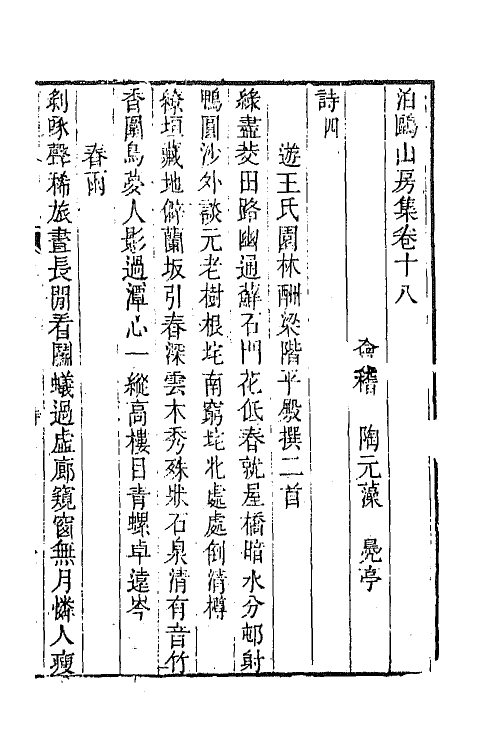 泊鷗山房集卷十八
會稽 陶元藻 鳧亭
詩四
遊王氏園林酬梁階平殿撰二首
綠盡茭田路幽通蘚石門花低春就屋橋暗水分邨射
鴨圓沙外談元老樹根垞南窮垞北處處倒清樽
繚垣藏地僻蘭坂引春深雲木秀殊狀石泉清有音竹
香圍鳥夢人影過潭心一縱高樓目青螺卓遠岑
春雨
剝啄聲稀旅晝長閒看鬭蟻過虛廊窺窗無月憐人瘦